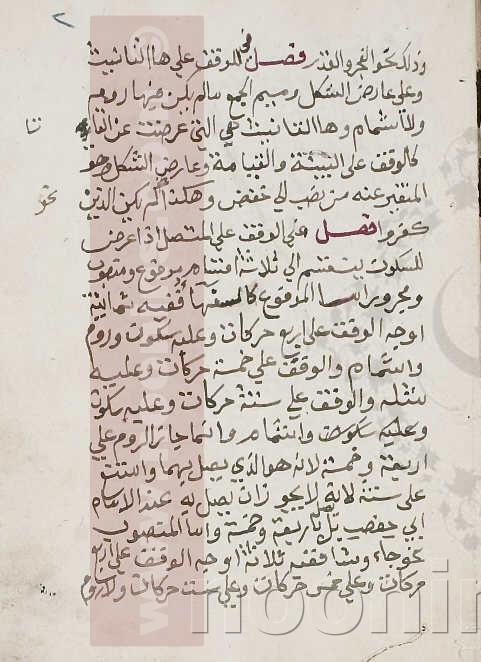 وذلك نحو الفجر والقدر فصل في الوقف على هاء التانيث
وعلى عارض الشكل وميم الجمع سالم يكن فيها روم
ولا اشمام وهاء التانيث هي التي عرضت عن التاء
كالوقف على البينة والقيامة وعارض الشكل وهو
المتغير عنه من نصب الى خفض وهكذا لم يكن الذين
كفروا فصل في الوقف على المتصل اذا عرض
للسكون ينقسم الى ثلاثة اقسام مرفوع ومنصوب
ومجرور اما المرفوع كالسفهاء ففيه ثمانية
اوجه الوقف على اربع حركات وعليه سكون وروم
واشمام والوقف على خمسة حركات وعليه
مثله والوقف على ستة حركات وعليه سكون
وعليه سكون واشمام وانما جاز الروم على
اربعة وخمسة لانه هو الذي يصل بهما وامتنع
على ستة لانه لا يجوز ان يصل به عند الامام
ابي حفص بل باربعة وخمسة واما المنصوب
نحو جاء وشاء ففيه ثلاثة اوجه الوقف على اربع
حركات وعلى خمس حركات وعلى ستة حركات ولا روم
نحو